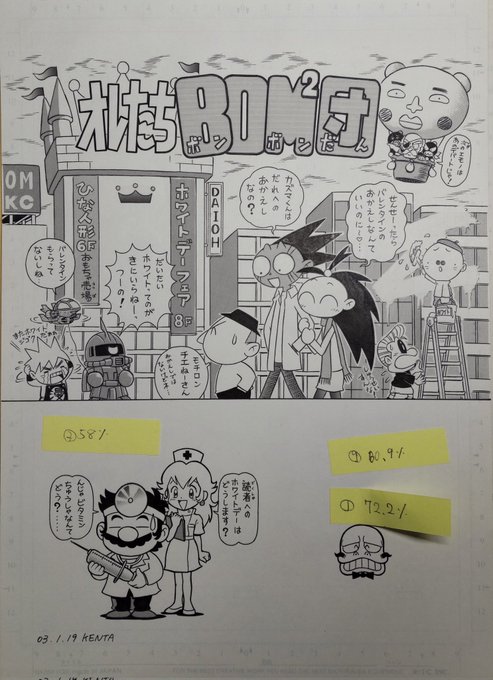 オレたちBOM²団
ボンボンだん
OM
KC
ひな人形
6Fおもちゃ売場
ホワイトデーフェア
8F
DAIOH
バレンタイン
もらって
ないしね
だいたい
ホワイトってのが
きにいらねー、
つーの!
カズマくんは
だれへの
おかえし
なの?
せんせーったら
バレンタインの
おかえしなんて
いいのに…♡
モチロン
チエねーさん
②58%
④80.9%
①72.2%
読者への
ホワイトデーは
どうします?
んじゃビタミン
ちゅうしゃなんて
どう?……
03.1.19 KENTA